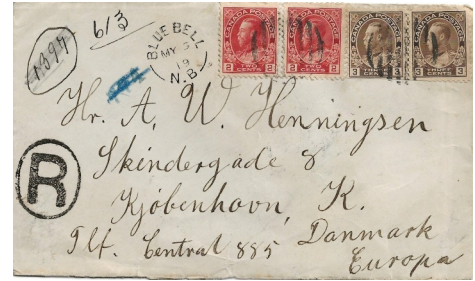 6/3
1397
BLUE BELL
MY 5
19
N.B.
CANADA POSTAGE
2 CENTS 2
CANADA POSTAGE
2 CENTS 2
CANADA POSTAGE
3 CENTS 3
CANADA POSTAGE
3 CENTS 3
Hr. A. W. Henningsen
Skindergade 8
R
Kjöbenhavn, K.
Tlf. Central 885
Danmark
Europa